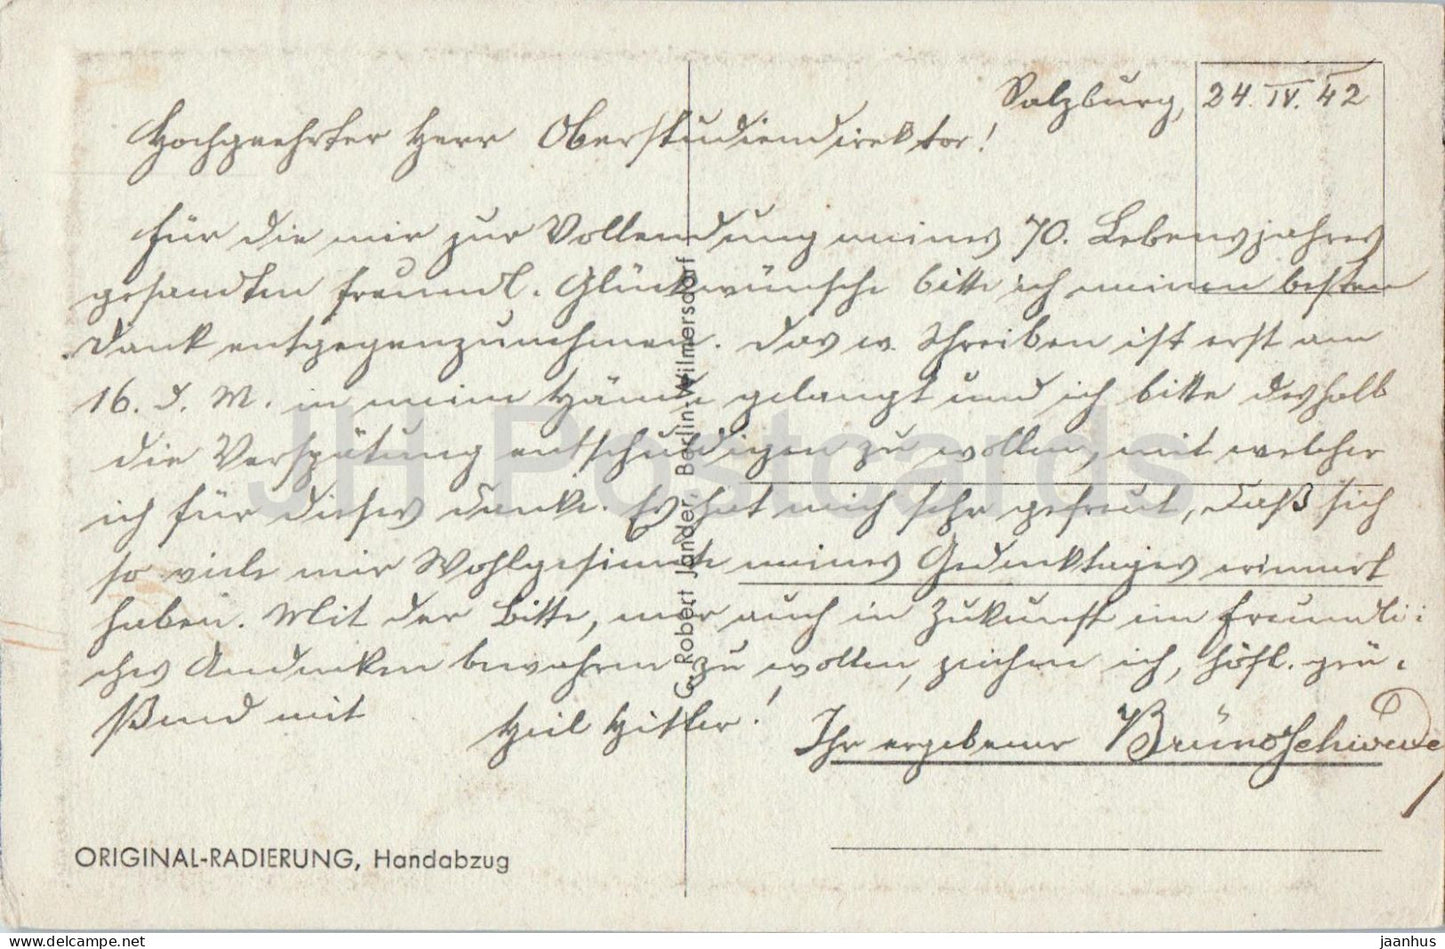 Salzburg, 24. IV. 42
Hochgeehrter Herr Oberstudiendirektor!
Für die mir zur Vollendung meines 70. Lebensjahres
gesandten freundl. Glückwünsche bitte ich meinen besten
Dank entgegenzunehmen. Das w. Schreiben ist erst am
16. d. M. in meine Hände gelangt und ich bitte deshalb
die Verspätung entschuldigen zu wollen, mit welcher
ich für dieses danke. Es hat mich sehr gefreut, daß sich
so viele mir Wohlgesinnte meines Gedenktages erinnert
haben. Mit der Bitte, mir auch in Zukunft ein freundli-
ches Andenken bewahren zu wollen, zeichne ich, höfl. grü-
ßend mit Heil Hitler!
Ihr ergebener Bruno
G. Robert Jander, Berlin-Wilmersdorf
ORIGINAL-RADIERUNG, Handabzug
JH Postcards
www.delcampe.net
jaanhus